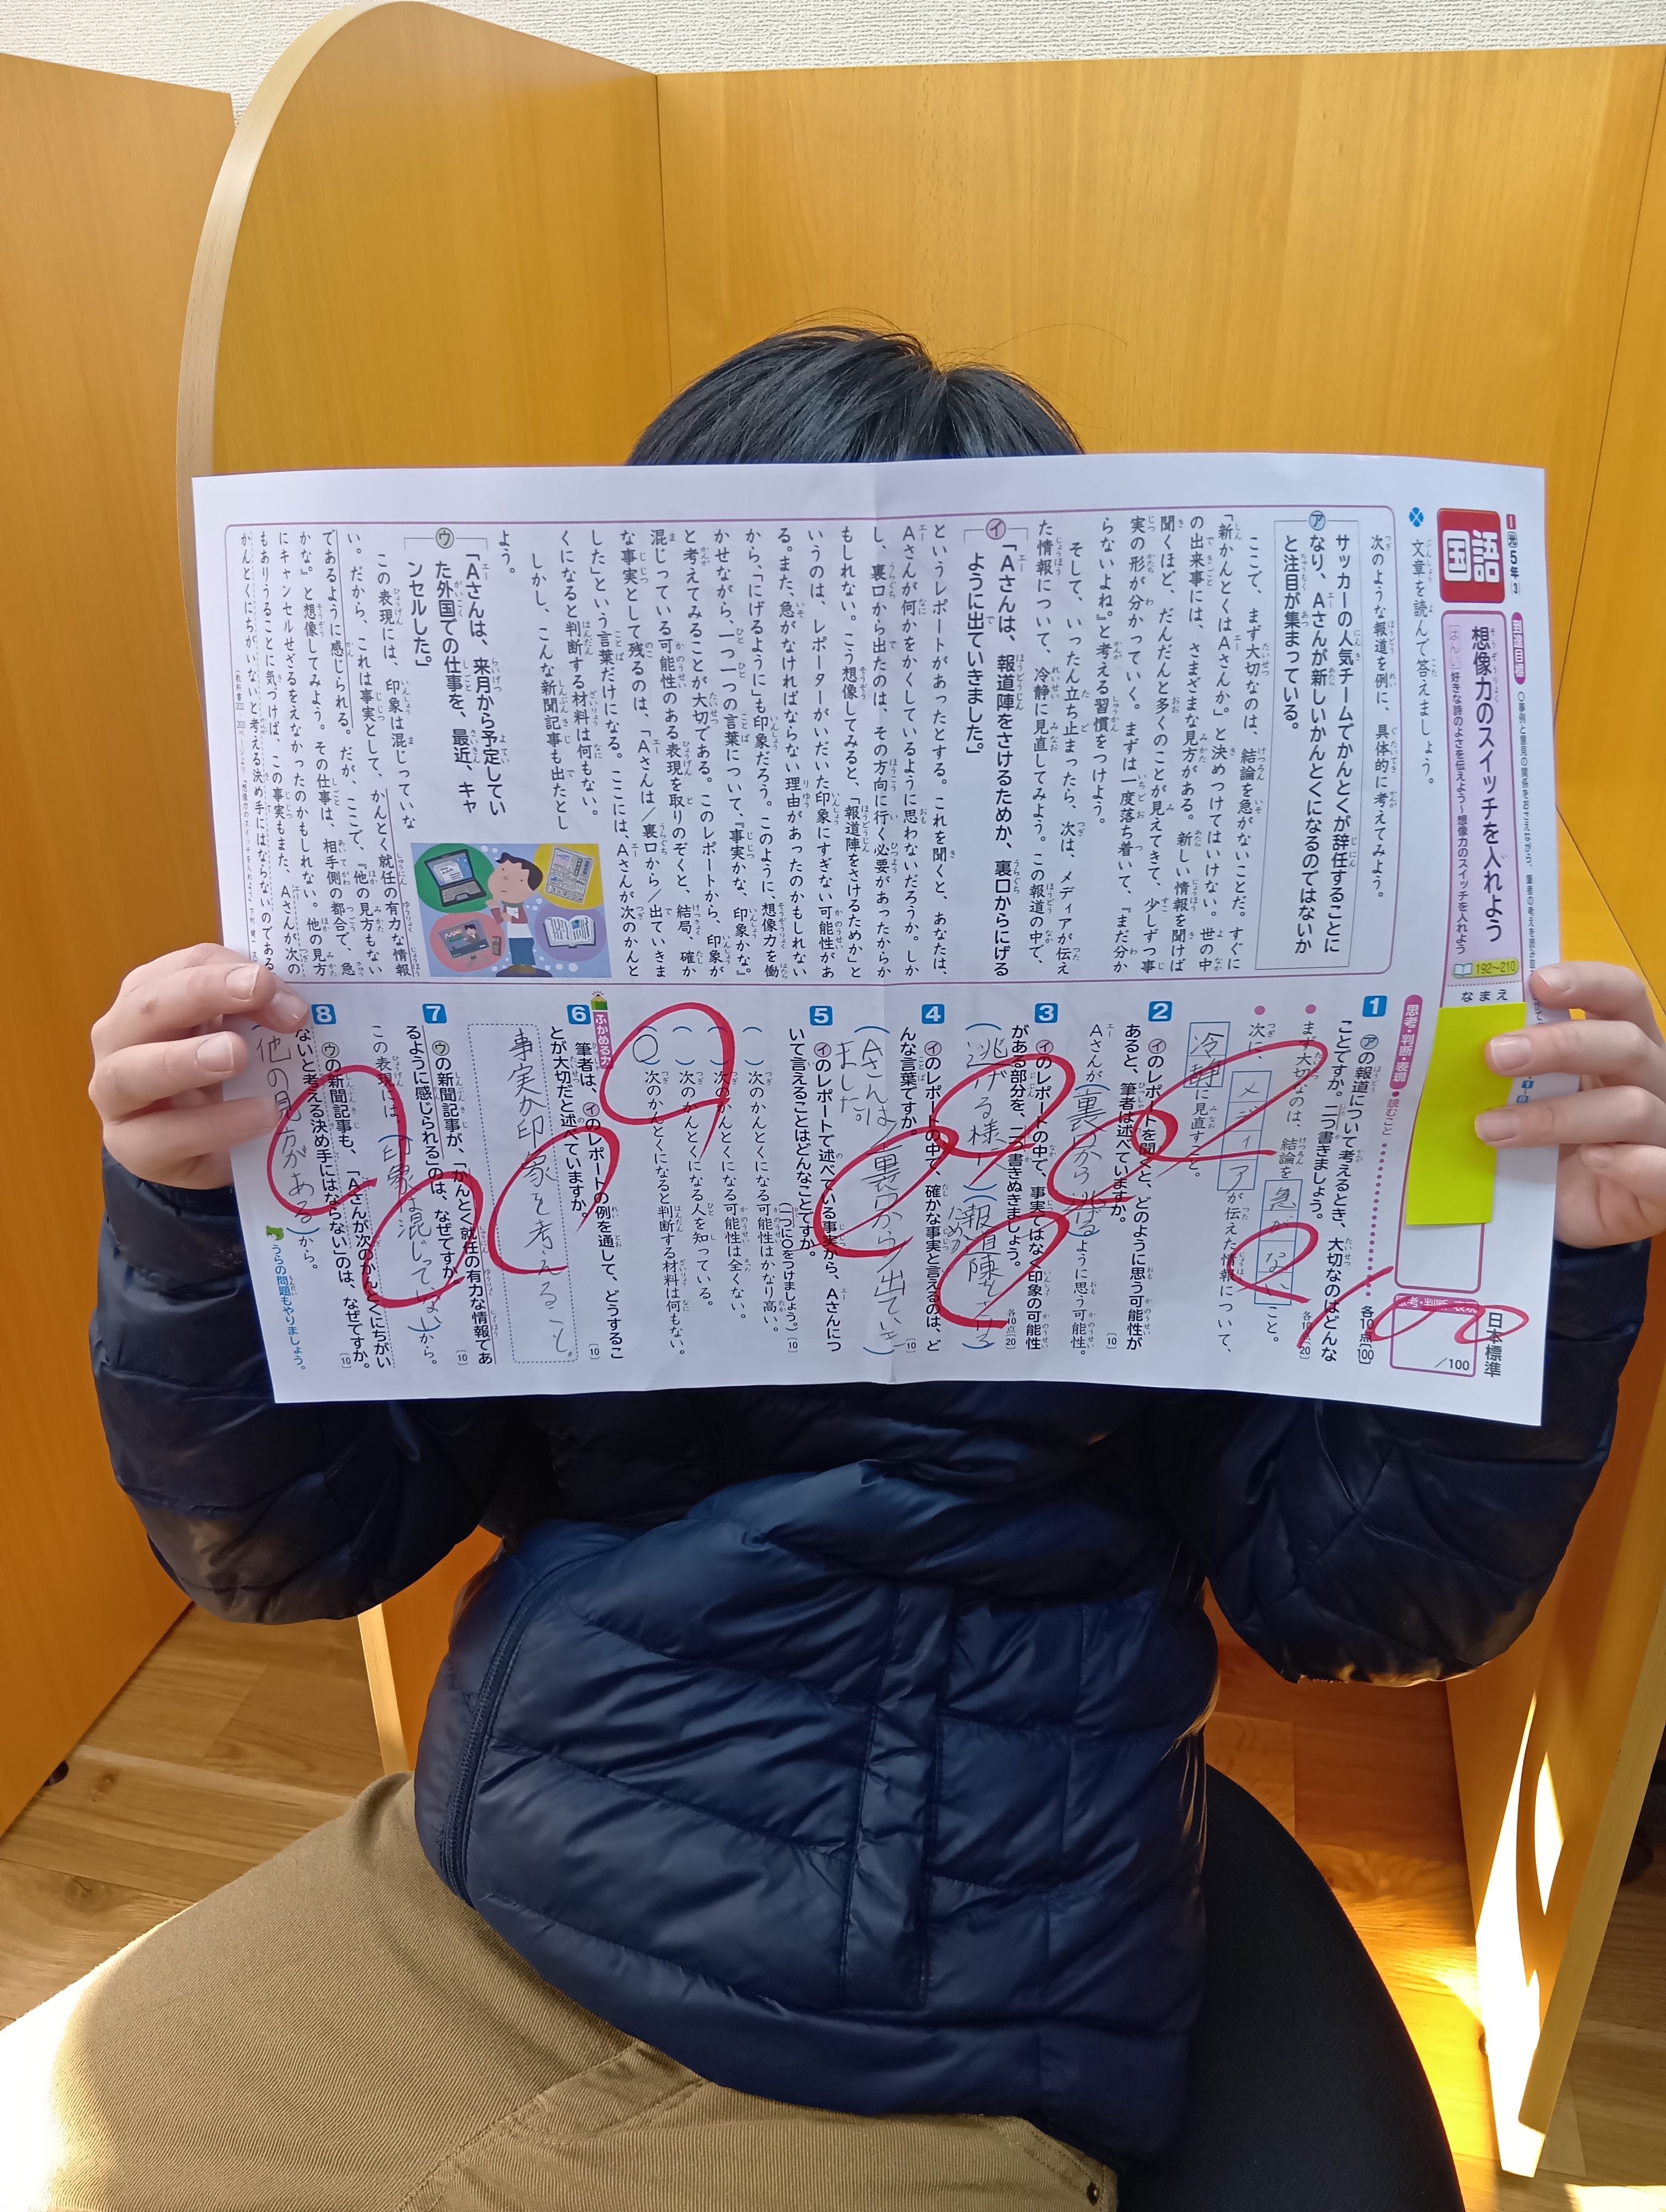 光5年③
国語
想像力のスイッチを入れよう
好きな詩のよさを伝えよう～想像力のスイッチを入れよう
192～210
なまえ
日本標準
思考・判断・表現
100
/100
文章を読んで答えましょう。
次のような報道を例に、具体的に考えてみよう。
㋐
サッカーの人気チームでかんとくが辞任することに
なり、Aさんが新しいかんとくになるのではないか
と注目が集まっている。
ここで、まず大切なのは、結論を急がないことだ。すぐに
「新かんとくはAさんか。」と決めつけてはいけない。世の中
の出来事には、さまざまな見方がある。新しい情報を聞けば
聞くほど、だんだんと多くのことが見えてきて、少しずつ事
実の形が分かっていく。まずは一度落ち着いて、『まだ分か
らないよね。』と考える習慣をつけよう。
そして、いったん立ち止まったら、次は、メディアが伝え
た情報について、冷静に見直してみよう。この報道の中で、
㋑
「Aさんは、報道陣をさけるためか、裏口からにげる
ように出ていきました。」
というレポートがあったとする。これを聞くと、あなたは、
Aさんが何かをかくしているように思わないだろうか。しか
し、裏口から出たのは、その方向に行く必要があったからか
もしれない。こう想像してみると、「報道陣をさけるためか」と
いうのは、レポーターがいだいた印象にすぎない可能性があ
る。また、急がなければならない理由があったのかもしれない
から、「にげるように」も印象だろう。このように、想像力を働
かせながら、一つ一つの言葉について、『事実かな、印象かな。』
と考えてみることが大切である。このレポートから、印象が
混じっている可能性のある表現を取りのぞくと、結局、確か
な事実として残るのは、「Aさんは/裏口から/出ていきま
した」という言葉だけになる。ここには、Aさんが次のかんと
くになると判断する材料は何もない。
しかし、こんな新聞記事も出たとし
よう。
㋒
「Aさんは、来月から予定してい
た外国での仕事を、最近、キャ
ンセルした。」
この表現には、印象は混じっていな
い。だから、これは事実として、かんとく就任の有力な情報
であるように感じられる。だが、ここで、『他の見方もない
かな。』と想像してみよう。その仕事は、相手側の都合で、急
にキャンセルせざるをえなかったのかもしれない。他の見方
もありうることに気づけば、この事実もまた、Aさんが次の
かんとくにちがいないと考える決め手にはならないのである
思考・判断・表現 ●読むこと 各10点[100]
1 ㋐の報道について考えるとき、大切なのはどんな
ことですか。二つ書きましょう。 各10点[20]
● まず大切なのは、結論を急がないこと。
● 次に、メディアが伝えた情報について、
冷静に見直すこと。
2 ㋑のレポートを聞くと、どのように思う可能性が
あると、筆者は述べていますか。 [10]
Aさんが(裏口から逃げる)ように思う可能性。
3 ㋑のレポートの中で、事実ではなく印象の可能性
がある部分を、二つ書きぬきましょう。 各10点[20]
(逃げる様に)(報道陣をさける
ためか)
4 ㋑のレポートの中で、確かな事実と言えるのは、ど
んな言葉ですか。 [10]
(Aさんは/裏口から/出ていき
ました)
5 ㋑のレポートで述べている事実から、Aさんにつ
いて言えることはどんなことですか。
(一つに○をつけましょう。) [10]
( )次のかんとくになる可能性はかなり高い。
( )次のかんとくになる可能性は全くない。
( )次のかんとくになる人を知っている。
(○)次のかんとくになると判断する材料は何もない。
ふかめる力
6 筆者は、㋑のレポートの例を通して、どうするこ
とが大切だと述べていますか。 [10]
事実か印象を考えること。
7 ㋒の新聞記事が、「かんとく就任の有力な情報であ
るように感じられる」のは、なぜですか。 [10]
この表現には、(印象は混じっていない)から。
8 ㋒の新聞記事も、「Aさんが次のかんとくにちがい
ないと考える決め手にはならない」のは、なぜですか。 [10]
(他の見方がある)から。
うらの問題もやりましょう。